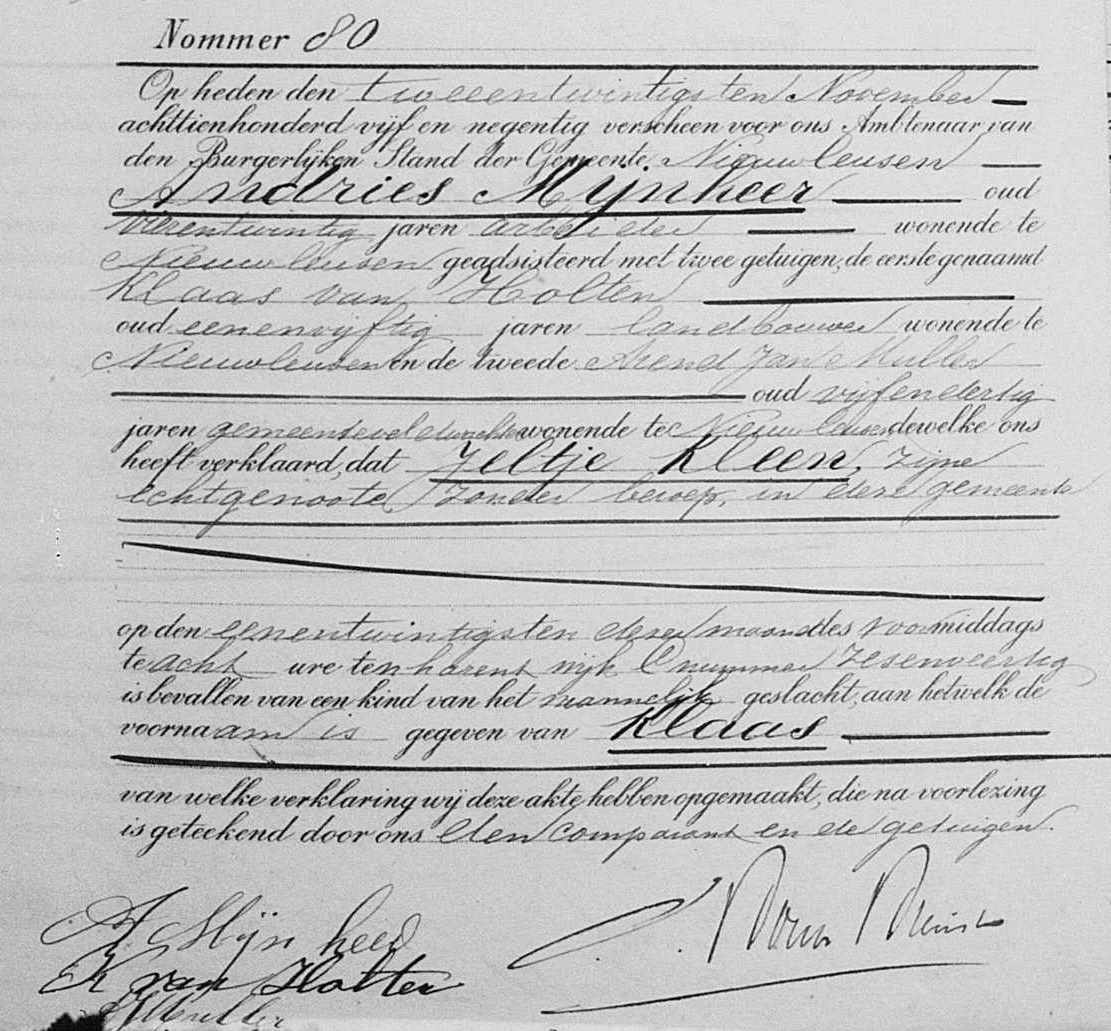 Nommer 80
Op heden den tweeentwintigsten November
achttienhonderd vijf en negentig verscheen voor ons Ambtenaar van
den Burgerlijken Stand der Gemeente Nieuwleusen
Andries Mijnheer oud
vierentwintig jaren arbeider wonende te
Nieuwleusen geadsisteerd met twee getuigen, de eerste genaamd
Klaas van Holten
oud eenenvijftig jaren landbouwer wonende te
Nieuwleusen en de tweede Arend Jan Muller
oud vijfendertig
jaren gemeenteveldwachter wonende te Nieuwleusen dewelke ons
heeft verklaard, dat Jeltje Kleen, zijne
echtgenoote zonder beroep, in deze gemeente
op den eenentwintigsten dezer maand des voormiddags
te acht ure ten harent wijk C nummer zesenveertig
is bevallen van een kind van het mannelijk geslacht, aan hetwelk de
voornaam is gegeven van Klaas
van welke verklaring wij deze akte hebben opgemaakt, die na voorlezing
is geteekend door ons den comparant en de getuigen.
A Mijnheer
K van Holten
AJ Muller